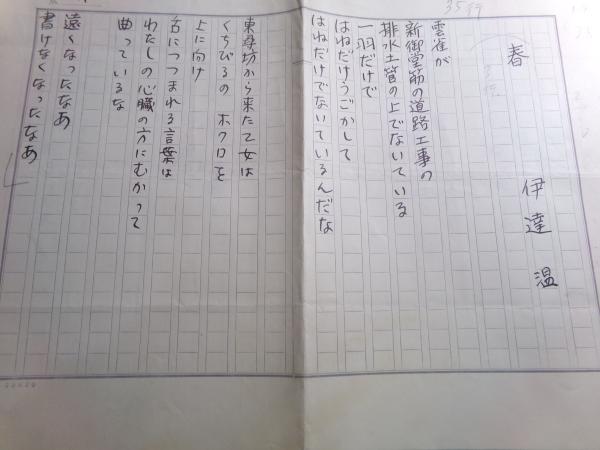 35行
春
伊達 温
雲雀が
新御堂筋の道路工事の
排水土管の上でないている
一羽だけで
はねだけうごかして
はねだけでないているんだな
東尋坊から来た乙女は
くちびるの ホクロを
上に向け
舌につつまれる言葉は
わたしの心臓の方にむかって
曲っているな
遠くなったなあ
書けなくなったなあ